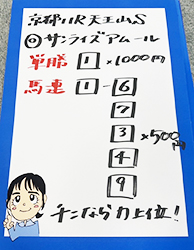 京都11R 天王山S
◎サンライズアムール
単勝 1 ×1000円
馬連 1-6
7
3 ×500円
4
9
チンなら力上位!